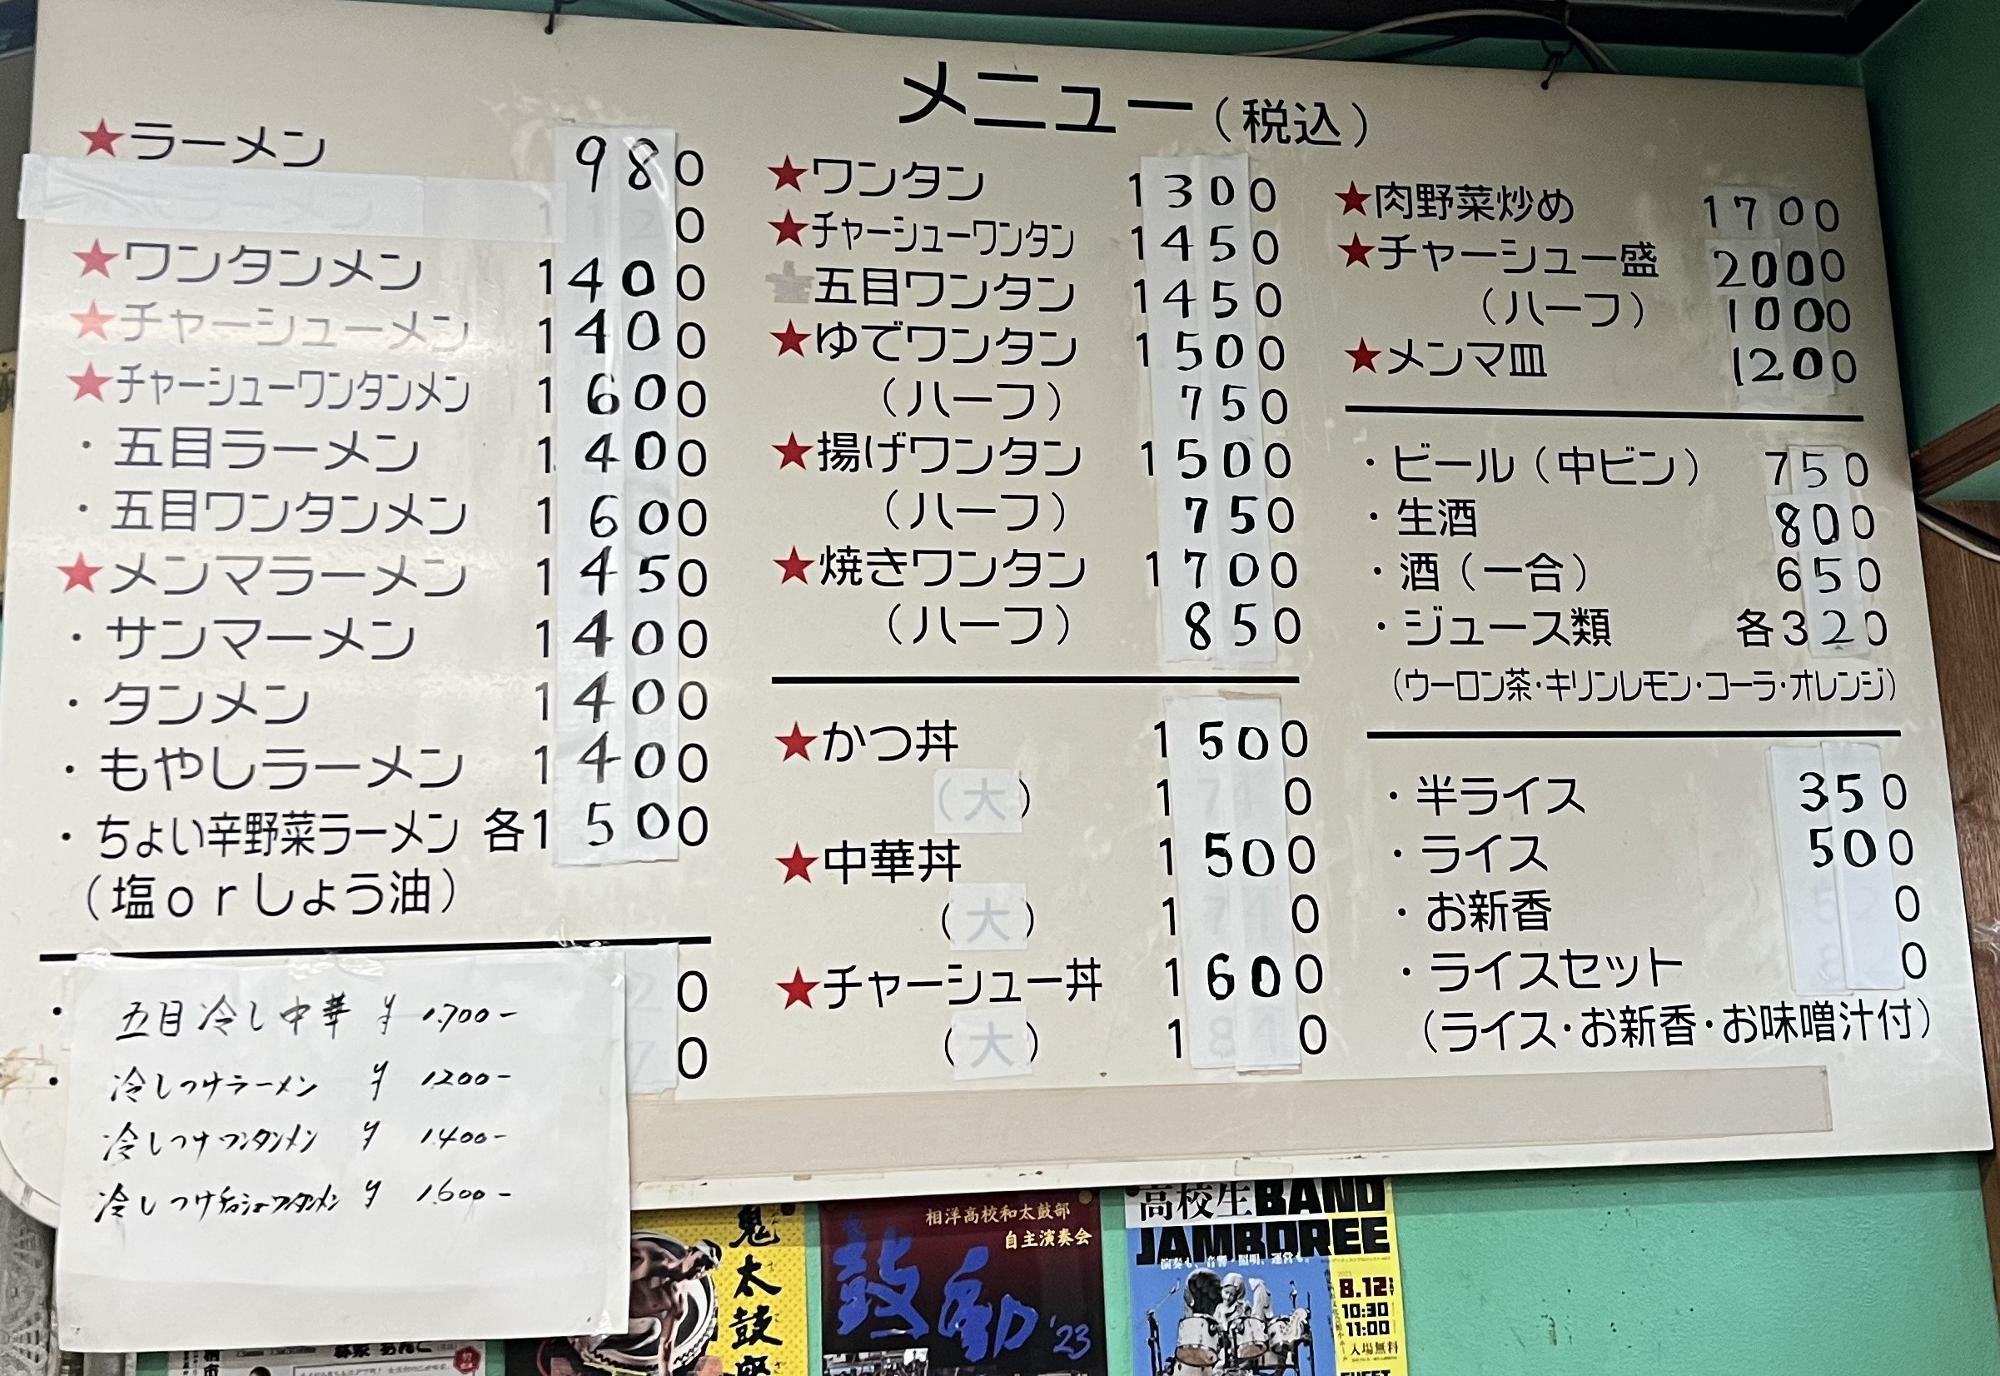 メニュー（税込）
★ラーメン 980
★ワンタンメン 1400
★チャーシューメン 1400
★チャーシューワンタンメン 1600
・五目ラーメン 1400
・五目ワンタンメン 1600
★メンマラーメン 1450
・サンマーメン 1400
・タンメン 1400
・もやしラーメン 1400
・ちょい辛野菜ラーメン 各1500
（塩orしょう油）
五目冷し中華 ¥1.700-
冷しつけラーメン ¥1200-
冷しつけワンタンメン ¥1.400-
冷しつけチャーシューワンタンメン ¥1.600-
★ワンタン 1300
★チャーシューワンタン 1450
五目ワンタン 1450
★ゆでワンタン 1500
（ハーフ） 750
★揚げワンタン 1500
（ハーフ） 750
★焼きワンタン 1700
（ハーフ） 850
★かつ丼 1500
（大）
★中華丼 1500
（大）
★チャーシュー丼 1600
（大）
★肉野菜炒め 1700
★チャーシュー盛 2000
（ハーフ） 1000
★メンマ皿 1200
・ビール（中ビン） 750
・生酒 800
・酒（一合） 650
・ジュース類 各320
（ウーロン茶・キリンレモン・コーラ・オレンジ）
・半ライス 350
・ライス 500
・お新香
・ライスセット
（ライス・お新香・お味噌汁付）
鬼太鼓座
相洋高校和太鼓部
自主演奏会
鼓動'23
高校生BAND
JAMBOREE
8.12
10:30
11:00
入場無料